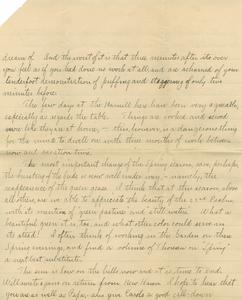 dream of. And the worst of it is that three minutes after its over
you feel as if you had done no work at all and are ashamed of your
tenderfoot demonstration of puffing and staggering of only two
minutes before.
The few days at the Hamill have been very agreeable,
especially as regards the table. Things are cooked and served
more like they are at home, — this, however, is a dangerous thing
for the mind to dwell on with three months of work between
now and vacation time.
The most important change of the Spring season, save, perhaps,
the bursting of the buds is now well under way, — namely, the
reappearance of the green grass. I think that at this season, above
all others, we are able to appreciate the beauty of the 23rd Psalm
with its mention of "green pastures and still waters." What a
beautiful green it is, too, and what other color could serve in
its stead! I often think of working in the Garden on these
Spring evenings, and find a volume of Thoreau on "Spring"
a next best substitute.
The sun is low on the hills now and it is time to end.
Will write again on return from New Haven. I hope to hear that
you are as well as Papa; also give Carola a good sit-down